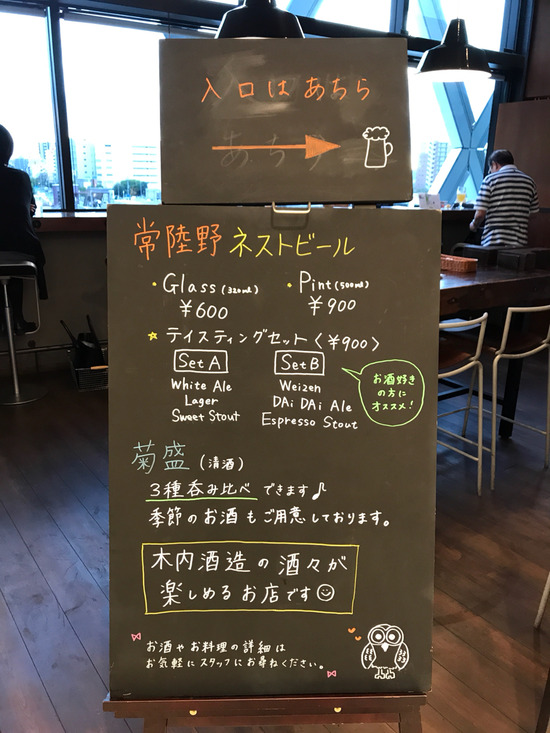 入口はあちら
常陸野ネストビール
・Glass (320ml) ・Pint (500ml)
¥600 ¥900
☆テイスティングセット〈¥900〉
Set A Set B
White Ale Weizen
Lager DAi DAi Ale
Sweet Stout Espresso Stout
お酒好き
の方に
オススメ!
菊盛(清酒)
3種呑み比べできます♪
季節のお酒もご用意しております。
木内酒造の酒々が
楽しめるお店です☺
お酒やお料理の詳細は
お気軽にスタッフにお尋ねください。